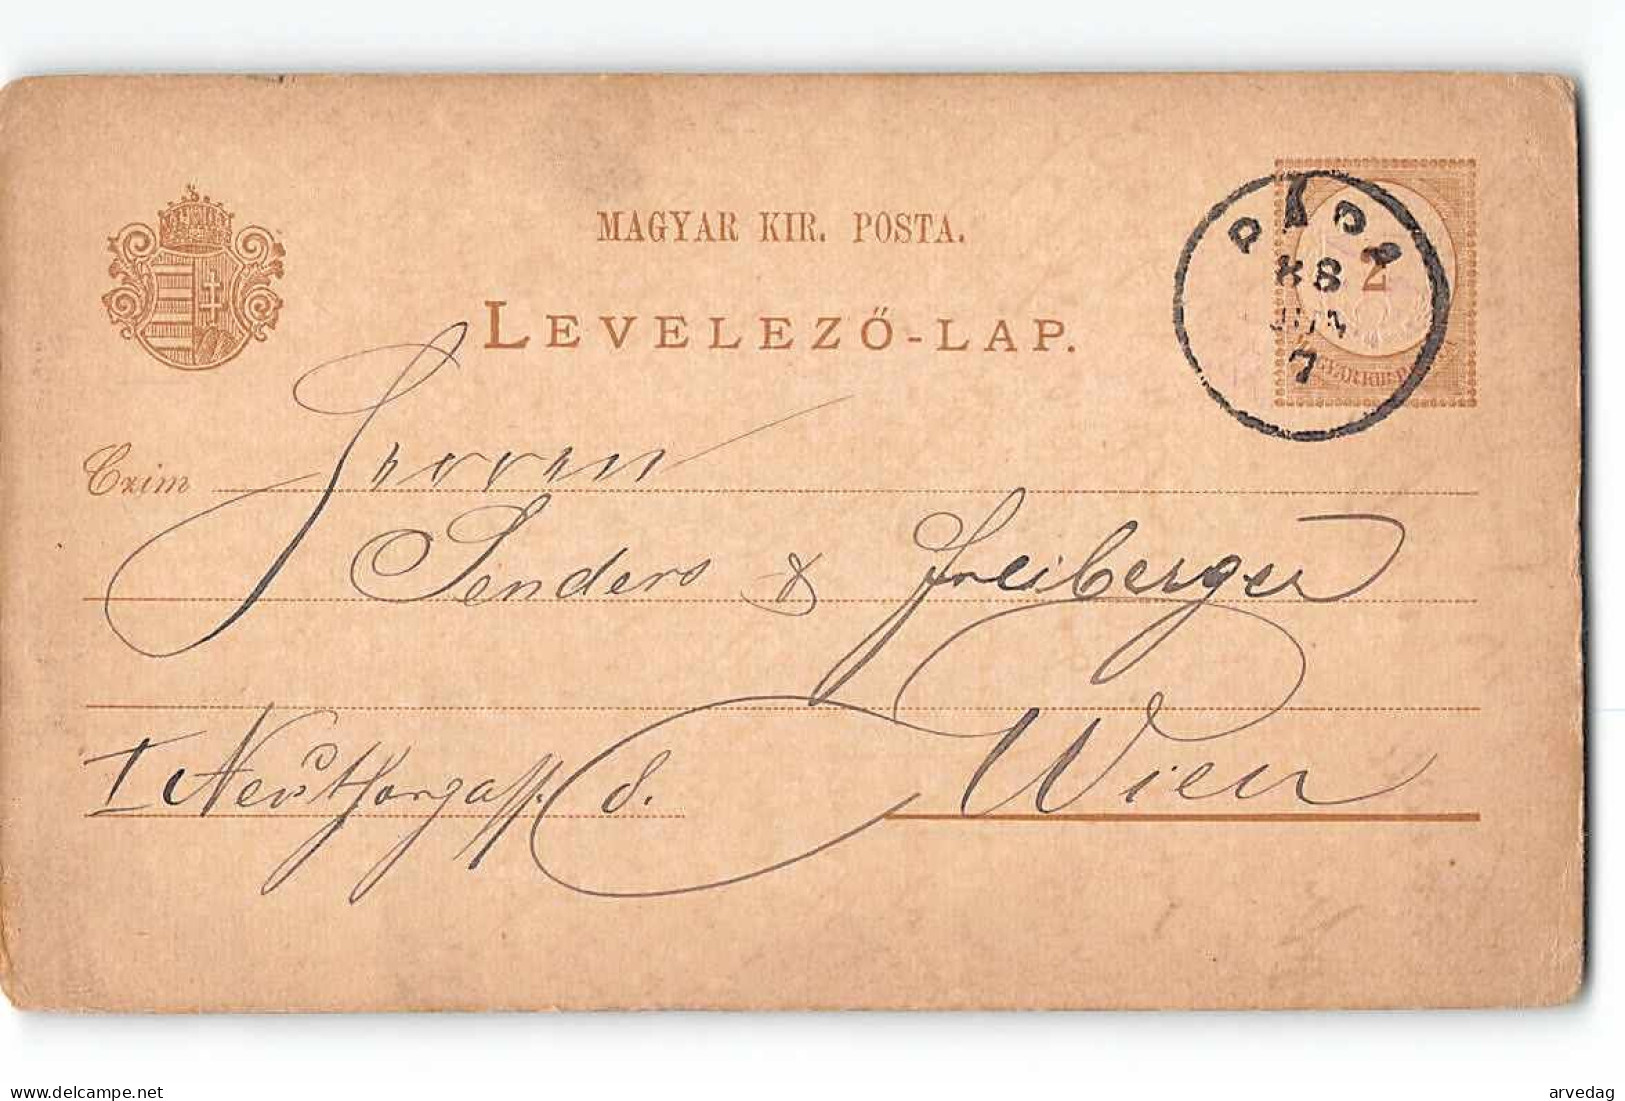 MAGYAR KIR. POSTA.
LEVELEZŐ-LAP.
2
MAGYAR KIR. POSTA
PÁPA
88
JUN
7
Czim
Herren
Senders & Freiberger
Wien
I Neuthorgass. 8.
delcampe.net
arvedag